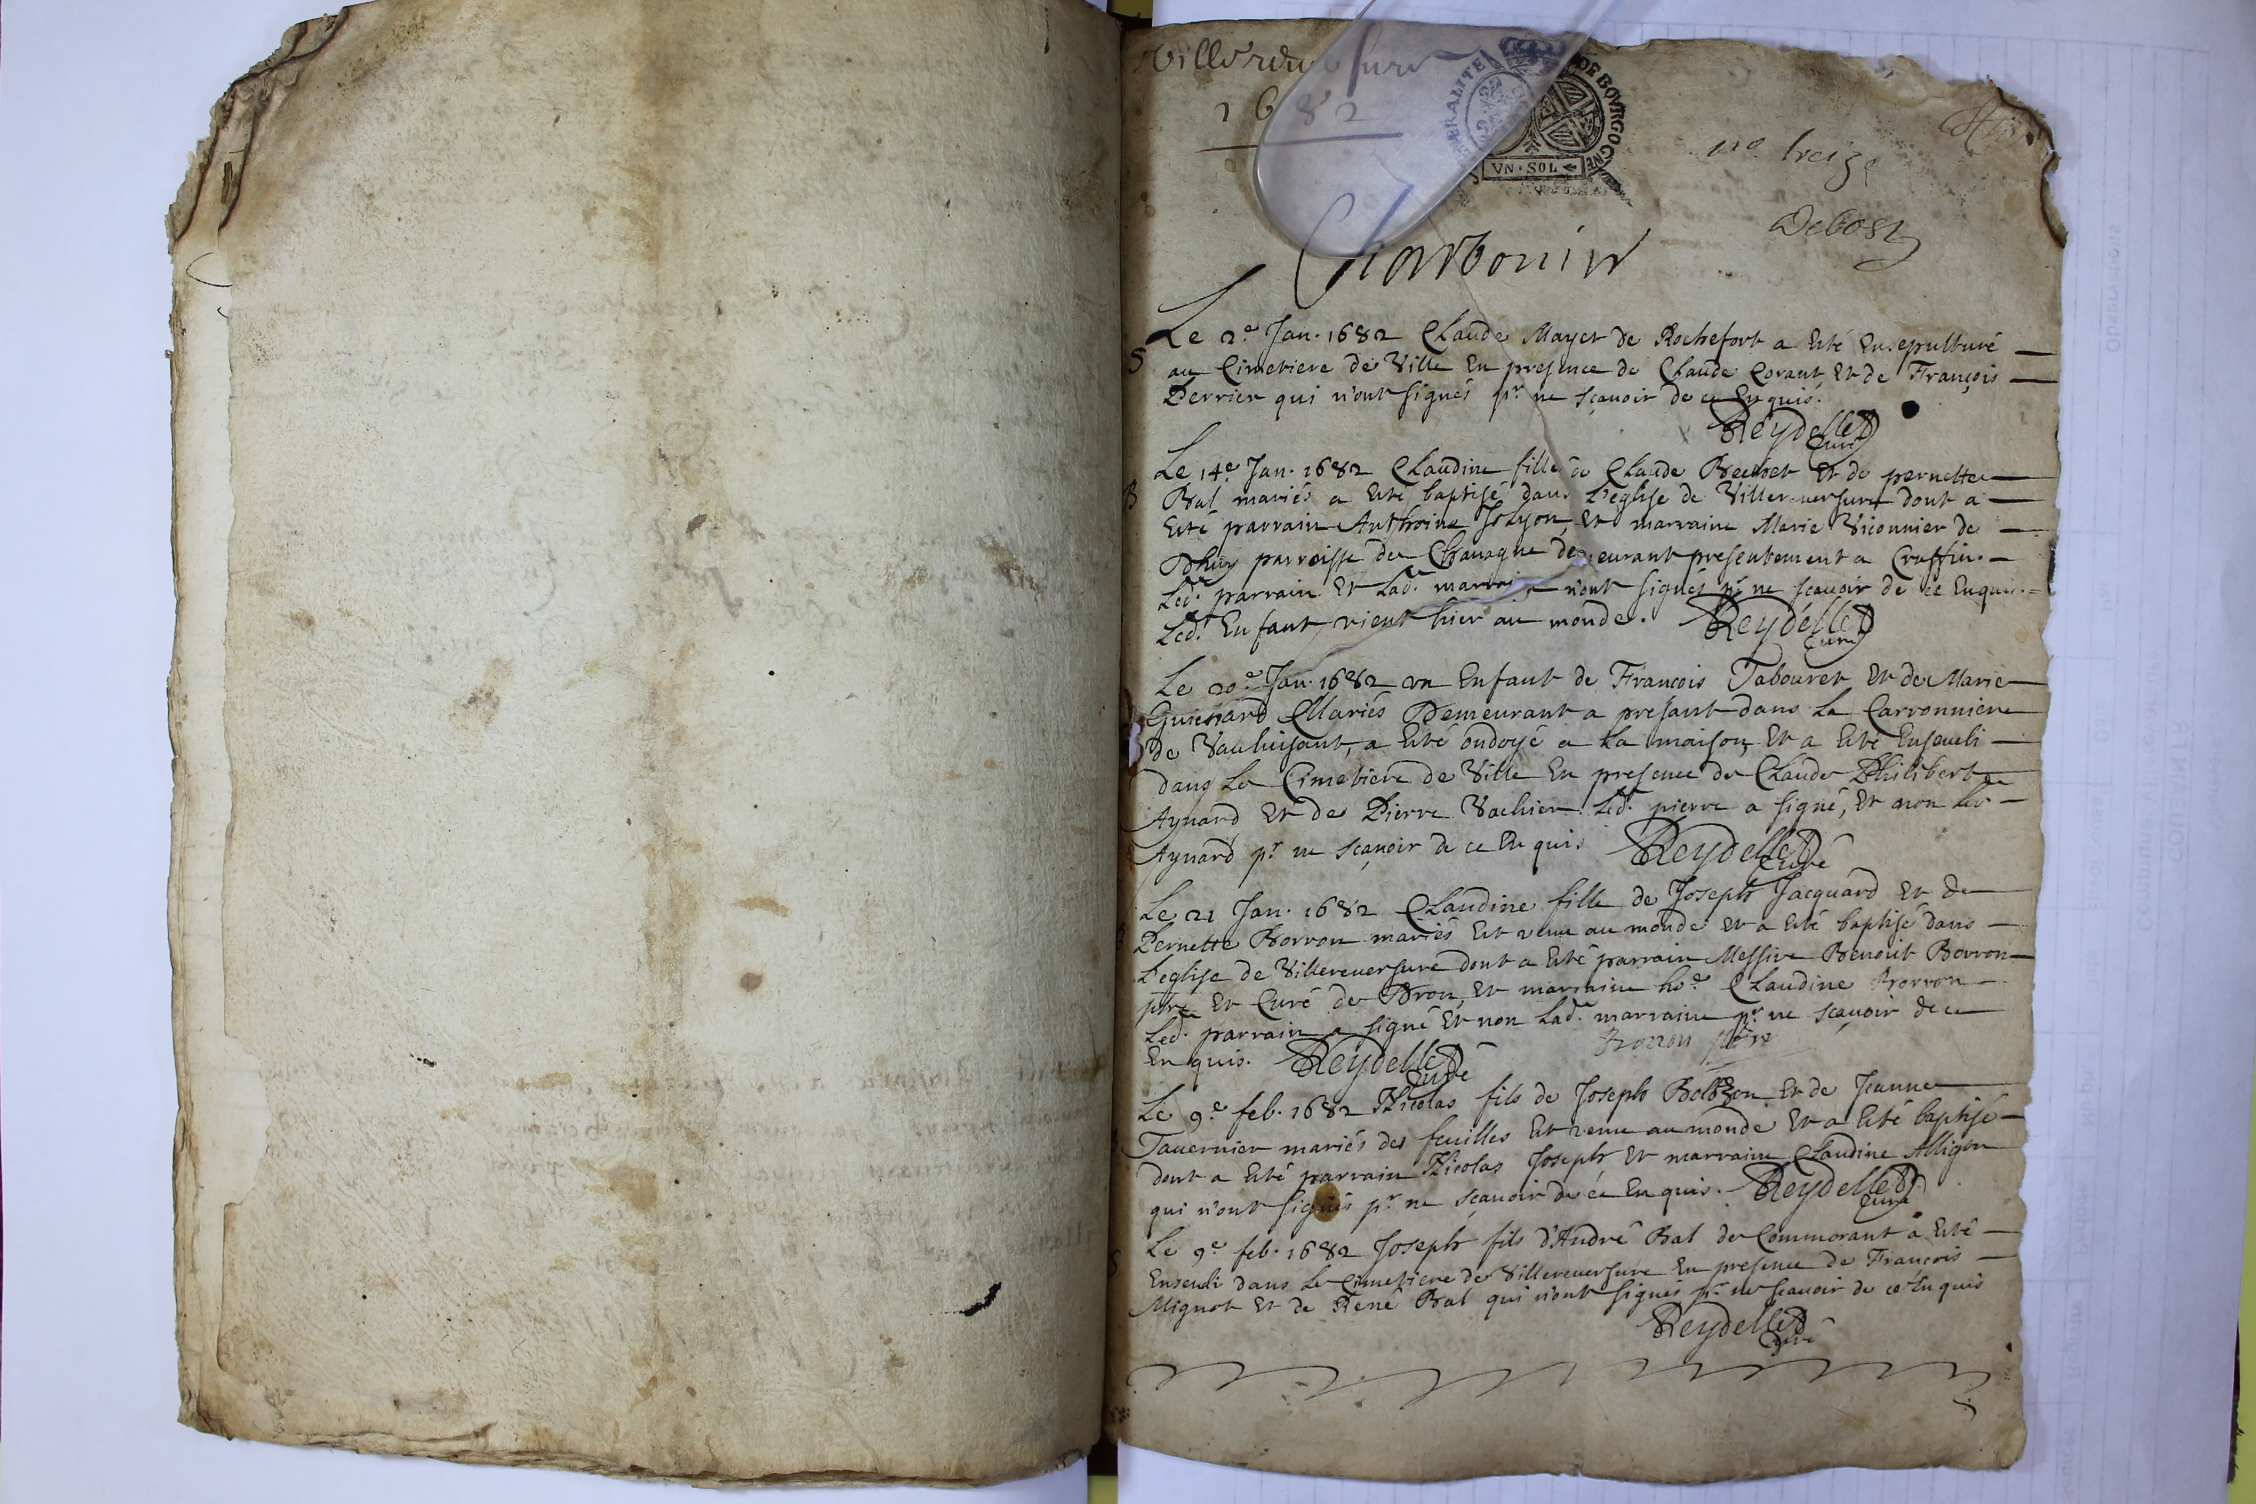 Villereuersure
1682
GENERALITE DE BOVRGOGNE
VN·SOL
no. treize
Debost
Charbonier
Le 2e Jan. 1682 Claude Mayet de Rochefort a Eté Ensepulturé
S
au Cimetiere de Ville En presence de Claude Corant Et de François
Perrier qui n'ont signés pr. ne sçavoir de ce Enquis.
Reydellet
Curé
Le 14e Jan. 1682 Claudine fille de Claude Et de pernette
B
Bal mariés a Eté baptisé dans L'eglise de Villereuersure dont a
Eté parrain Anthoine Et marraine Marie Viconnier de
Dhuy parroisse de Chauagne demeurant presentement a Craffin.
Led. parrain Et Lad. marraine n'ont signés pr. ne scauoir de ce Enquis.
Led. Enfant vient hier au monde. Reydellet
Curé
Le 20e Jan. 1682 vn Enfant de François Tabouret Et de Marie
Guichard Mariés Demeurant a presant dans La Carronniere
de Vauluisant, a Eté ondoyé a La maison Et a Eté Enseueli
dans Le Cimetiere de Ville En presence de Claude Philiberte
Aynard Et de Pierre Vachier Led. pierre a signé, Et non Led.
Aynard pr. ne sçauoir de ce En quis Reydellet
Curé
Le 21 Jan. 1682 Claudine fille de Joseph Jacquard Et de
Pernette Borron mariés Est venu au monde Et a Eté baptisé dans
L'eglise de Villereuersure dont a Eté parrain Messire Benoit Borron
ptre Et Curé de Dron, Et marraine ho.e Claudine Borron
Led. parrain a signé Et non Lad. marraine pr. ne sçauoir de ce
Borron ptre
En quis. Reydellet
Curé
Le 9e feb. 1682 Nicolas fils de Joseph Et de Jeanne
Tauernier mariés des feuilles Est venu au monde Et a Eté baptisé
dont a Eté parrain Nicolas Joseph Et marraine Claudine Alligon
qui n'ont signés pr. ne sçauoir de ce En quis. Reydellet
Curé
Le 9e feb. 1682 Joseph fils d'André Bal de Commorant a Eté
S
Enseueli dans Le Cimetiere de Villereuersure En presence de François
Mignot Et de René Bal qui n'ont signés pr. ne scauoir de ce En quis
Reydellet
Curé